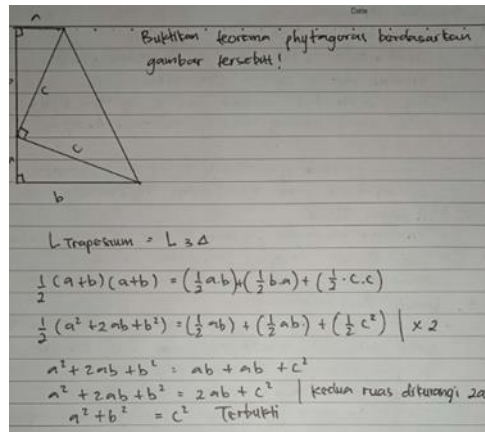 Date
a
Buktikan teorema phytagoras berdasarkan
gambar tersebut!
c
c
b
L Trapesium = L 3 Δ
1/2 (a+b)(a+b) = (1/2 a.b)+(1/2 b.a)+(1/2 . c.c)
1/2 (a² + 2ab + b²) = (1/2 ab) + (1/2 ab) + (1/2 c²) | x 2
a² + 2ab + b² = ab + ab + c²
a² + 2ab + b² = 2ab + c² | kedua ruas dikurangi 2a
a² + b² = c² Terbukti